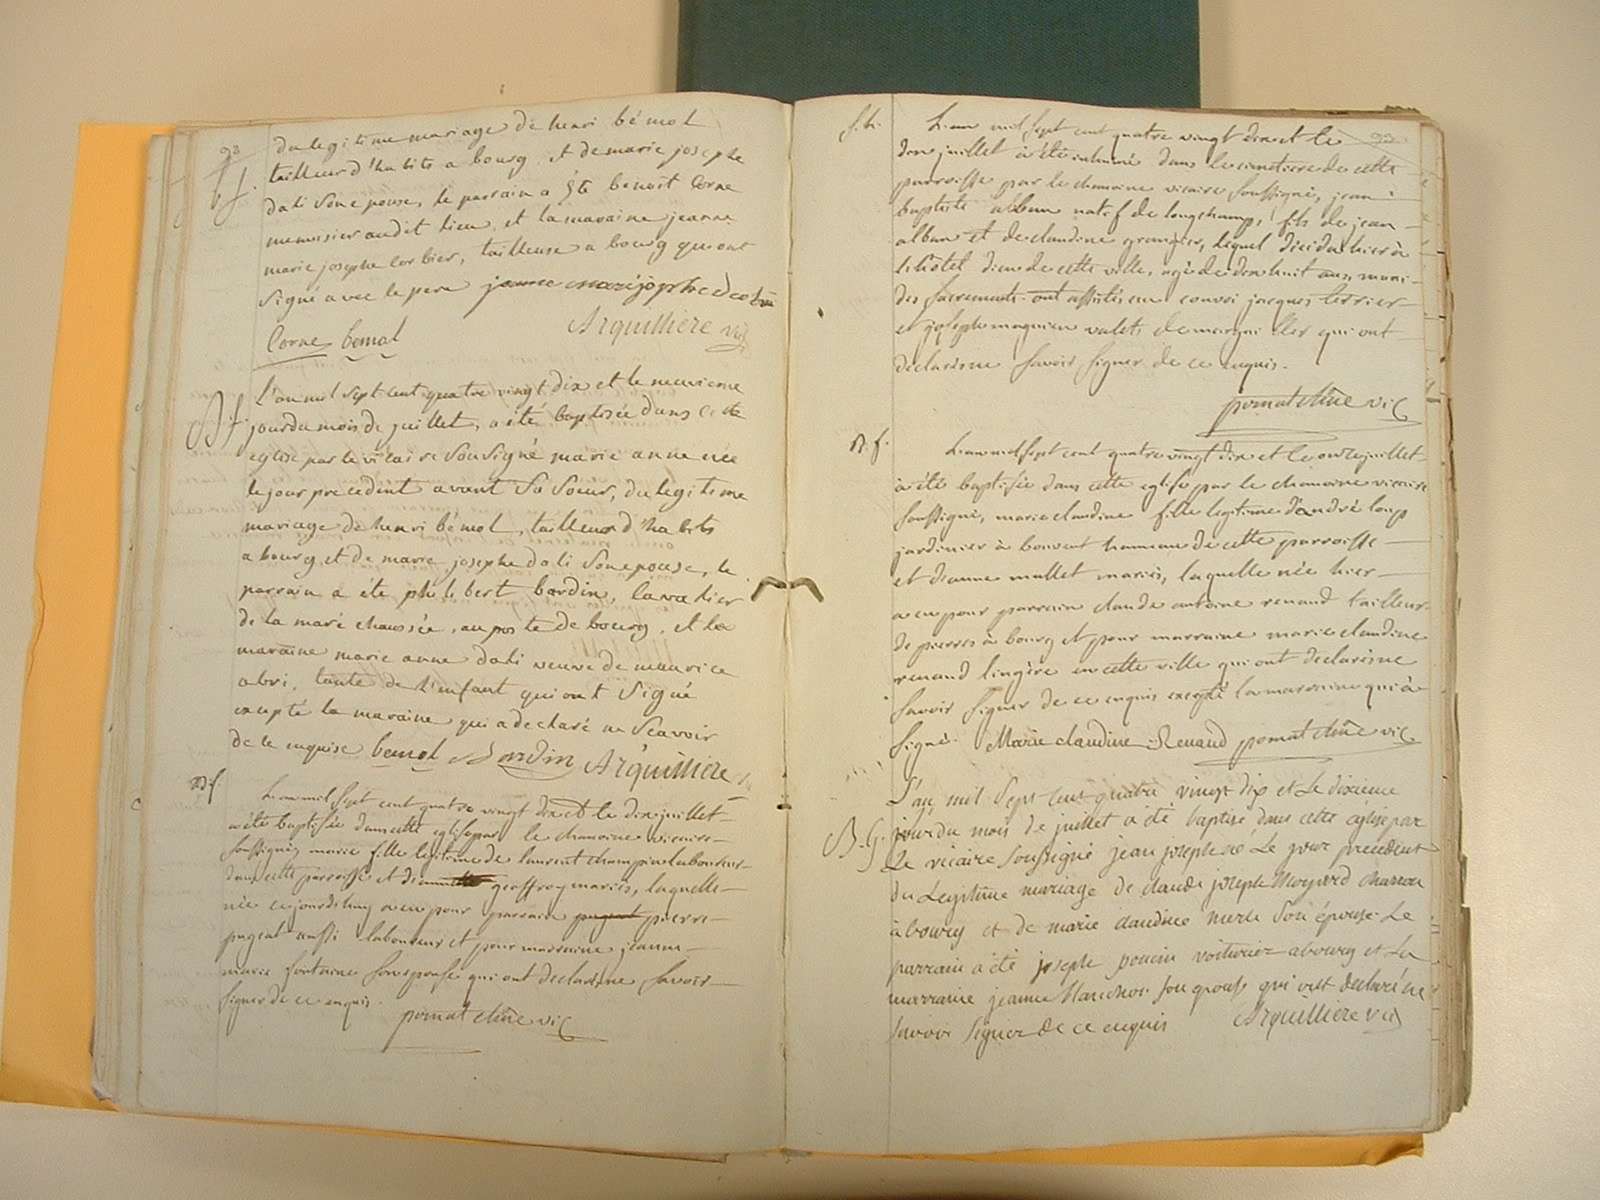 93
du legitime mariage de henri bémol
tailleur d'habits a bourg, et de marie josephe
dali son epouse, le parrain a été benoit Corne
menuisier audit lieu, et la maraine jeanne
marie josephe Corbier, tailleuse a bourg qui ont
signé avec le pere
Arquilliere vic
Corne bemol
B. f.
L'an mil sept cent quatre vingt dix et le neuvieme
jour du mois de juillet, a été baptisée dans cette
eglise par le vicaire Sousigné marie anne née
le jour precedent avant Sa Soeur, du legitime
mariage de henri bémol, tailleur d'habits
a bourg et de marie josephe dali Son epouse, le
parrain a été philibert bardin, cavalier
de la maré chaussée, au poste de bourg, et la
maraine marie anne dali veuve de maurice
abri, tante de l'enfant qui ont Signé
excepté la maraine qui a declaré ne Scavoir
de ce enquise bemol Bardin Arquilliere
B. f.
L'an mil sept cent quatre vingt dix et le dix juillet
a été baptisée dans cette eglise par le chanoine vicaire
soussigné, marie fille legitime de laurent champion laboureur
dans cette parroisse et d' geoffroy mariés, laquelle
née aujourdhuy a eu pour parrain pugeat pierre
pugeat aussi laboureur et pour marraine jeanne
marie fontaine son epouse qui ont declaré ne Savoir
signer de ce enquis.
pomat chne vic
93
S. h.
L'an mil sept cent quatre vingt dix et le
dix juillet a été inhumé dans le cimetierre de cette
parroisse par le chanoine vicaire soussigné, jean
baptiste alban natif de longchamp, fils de jean
alban et de claudine grangier, lequel décidé hier à
l'hôtel dieu de cette ville, agé de dix huit ans, muni
des sacrements ont assistés au convoi jacques terrier
et joseph magnien valets de marguillier qui ont
declaré ne Savoir signer de ce enquis.
pomat chne vic
B. f.
L'an mil sept cent quatre vingt dix et le onze juillet
a été baptisée dans cette eglise par le chanoine vicaire
soussigné, marie claudine fille legitime d'andré loup
jardinier à bouvent hameau de cette parroisse
et d'anne mallet mariés, laquelle née hier
a eu pour parrain claude antoine renaud tailleur
de pierres à bourg et pour marraine marie claudine
renaud lingère en cette ville qui ont declaré ne
Savoir signer de ce enquis excepté la marraine qui a
signé. Marie claudine Renaud pomat chne vic
B. G.
L'an mil sept cent quatre vingt dix et Le dixieme
jour du mois de juillet a été baptisé dans cette église par
Le vicaire Soussigné jean joseph né Le jour précédent
du Legitime mariage de claude joseph Moyard charron
à bourg et de marie claudine merle Son épouse Le
parrain a été joseph poncin voiturier a bourg et La
marraine jeanne Blanchon Son epouse qui ont declaré ne
Savoir Signer de ce enquis Arquilliere vic